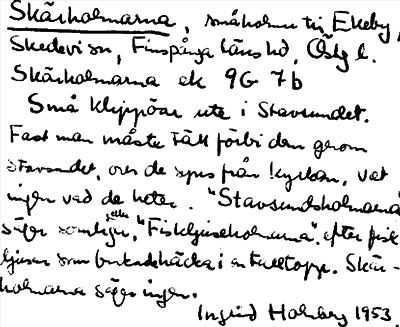 Skärholmarna, småholmar till Ekeby,
Skedevi sn, Finspånga läns hd, Östg l.
Skärholmarna ek 9G 7b
Små klippöar ute i Stavsundet.
Fast man måste rätt förbi dem genom
Stavsundet, och de syns från kyrkan, vet
ingen vad de heter. "Stavsundsholmarna"
säger somliga, eller "Fiskljuseholmarna", efter fisk
ljusen som brukade häcka i en talltopp. Skär-
holmarna säger ingen.
Ingrid Holmberg 1953.